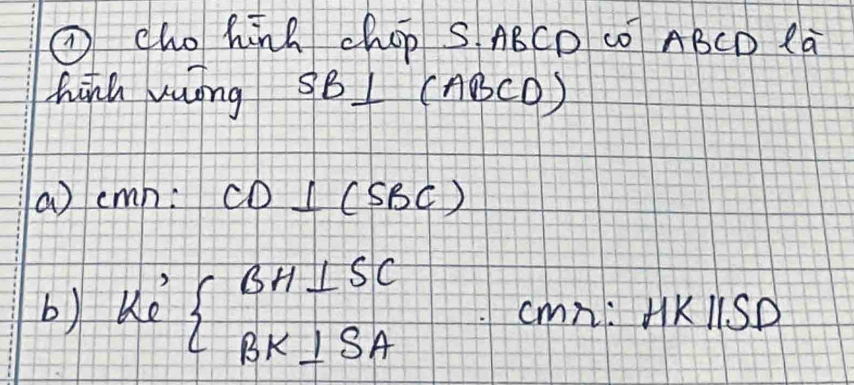 ① Cho hình chóp S.ABCD có ABCD là
hình vuông SB ⊥ (ABCD)
a) cmn: CD ⊥ (SBC)
b) Kẻ { BH ⊥ SC
BK ⊥ SA . cmn: HK // SD